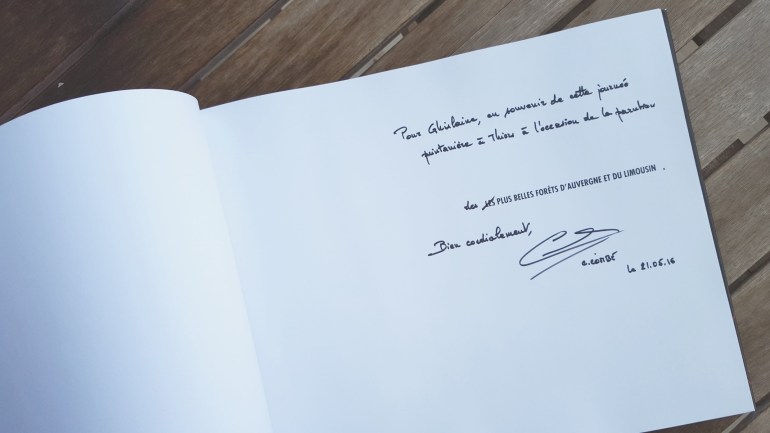 Pour Ghislaine, en souvenir de cette journée
printanière à Thiers à l'occasion de la parution
des PLUS BELLES FORÊTS D'AUVERGNE ET DU LIMOUSIN.
Bien cordialement,
C. COMBE
le 21.05.16